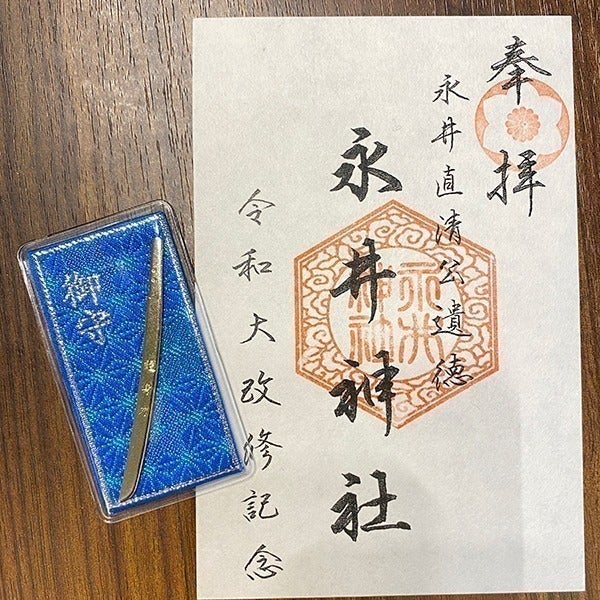 奉拝
永井直清公遺徳
永井神社
令和大改修記念
御守
永井神社